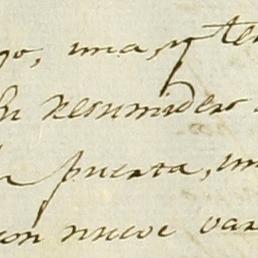 go, una, y te
su resumidero
puerta, un
con nueve var